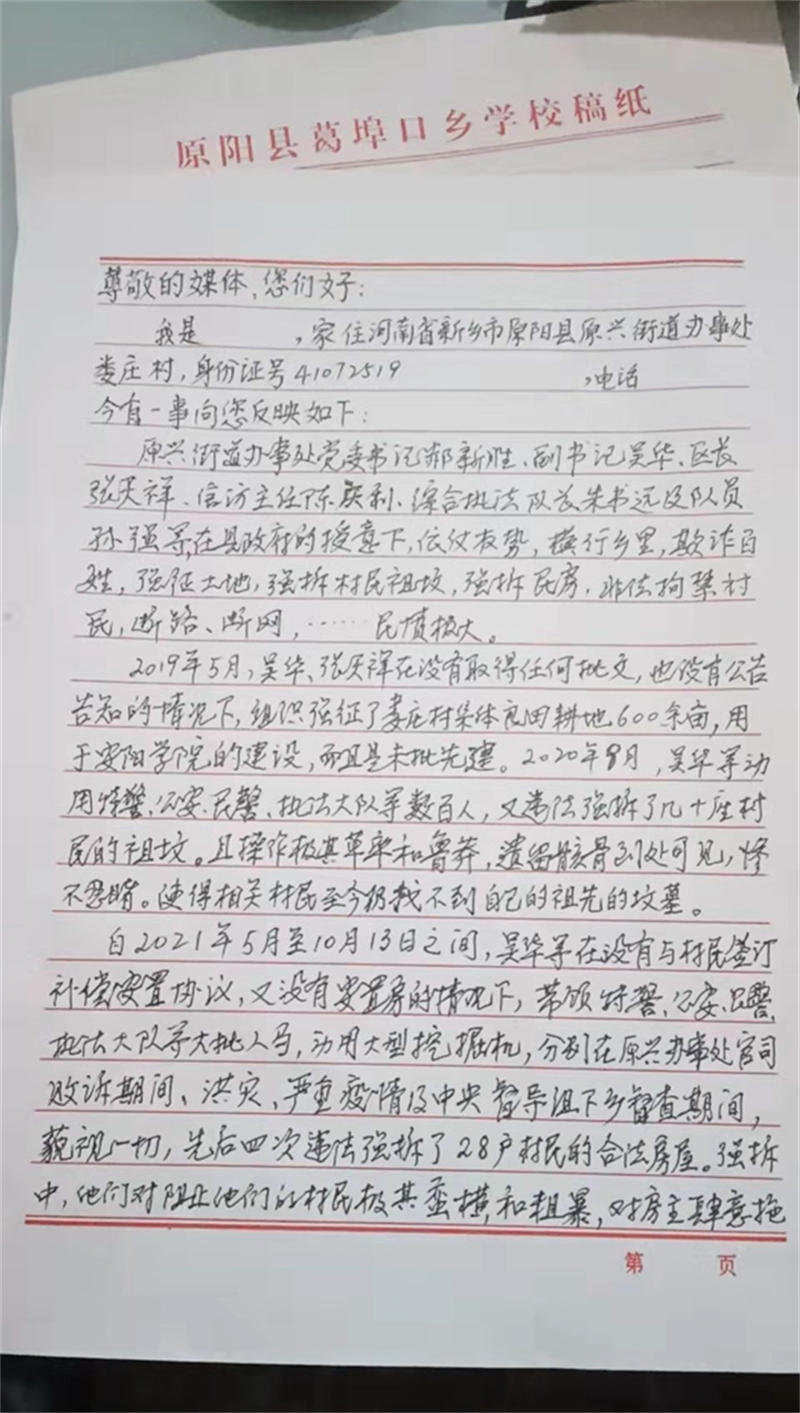 原阳县葛埠口乡学校稿纸
尊敬的媒体、您们好:
我是 ,家住河南省新乡市原阳县原兴街道办事处
娄庄村,身份证号41072519 ,电话
今有一事向您反映如下:
原兴街道办事处党委书记郝新胜、副书记吴华、区长
张天祥、信访主任陈庆利、综合执法队长朱书远及队员
孙强等,在县政府的授意下,依仗权势,横行乡里,欺诈百
姓,强征土地,强拆村民祖坟,强拆民房,非法拘禁村
民,断路、断网,……民愤极大。
2019年5月,吴华、张天祥在没有取得任何批文,也没有公告
告知的情况下,组织强征了娄庄村集体良田耕地600余亩,用
于安阳学院的建设,而且是未批先建。2020年9月,吴华等动
用特警、公安、民警、执法大队等数百人,又违法强拆了几十座村
民的祖坟。且操作极其草率和鲁莽,遗留骸骨到处可见,惨
不忍睹。使得相关村民至今仍找不到自己的祖先的坟墓。
自2021年5月至10月13日之间,吴华等在没有与村民签订
补偿安置协议,又没有安置房的情况下,带领特警、公安、民警、
执法大队等大批人马,动用大型挖掘机,分别在原兴办事处官司
败诉期间、洪灾、严重疫情及中央督导组下乡督查期间,
藐视一切,先后四次违法强拆了28户村民的合法房屋。强拆
中,他们对阻止他们的村民极其蛮横和粗暴,对房主肆意拖
第 页